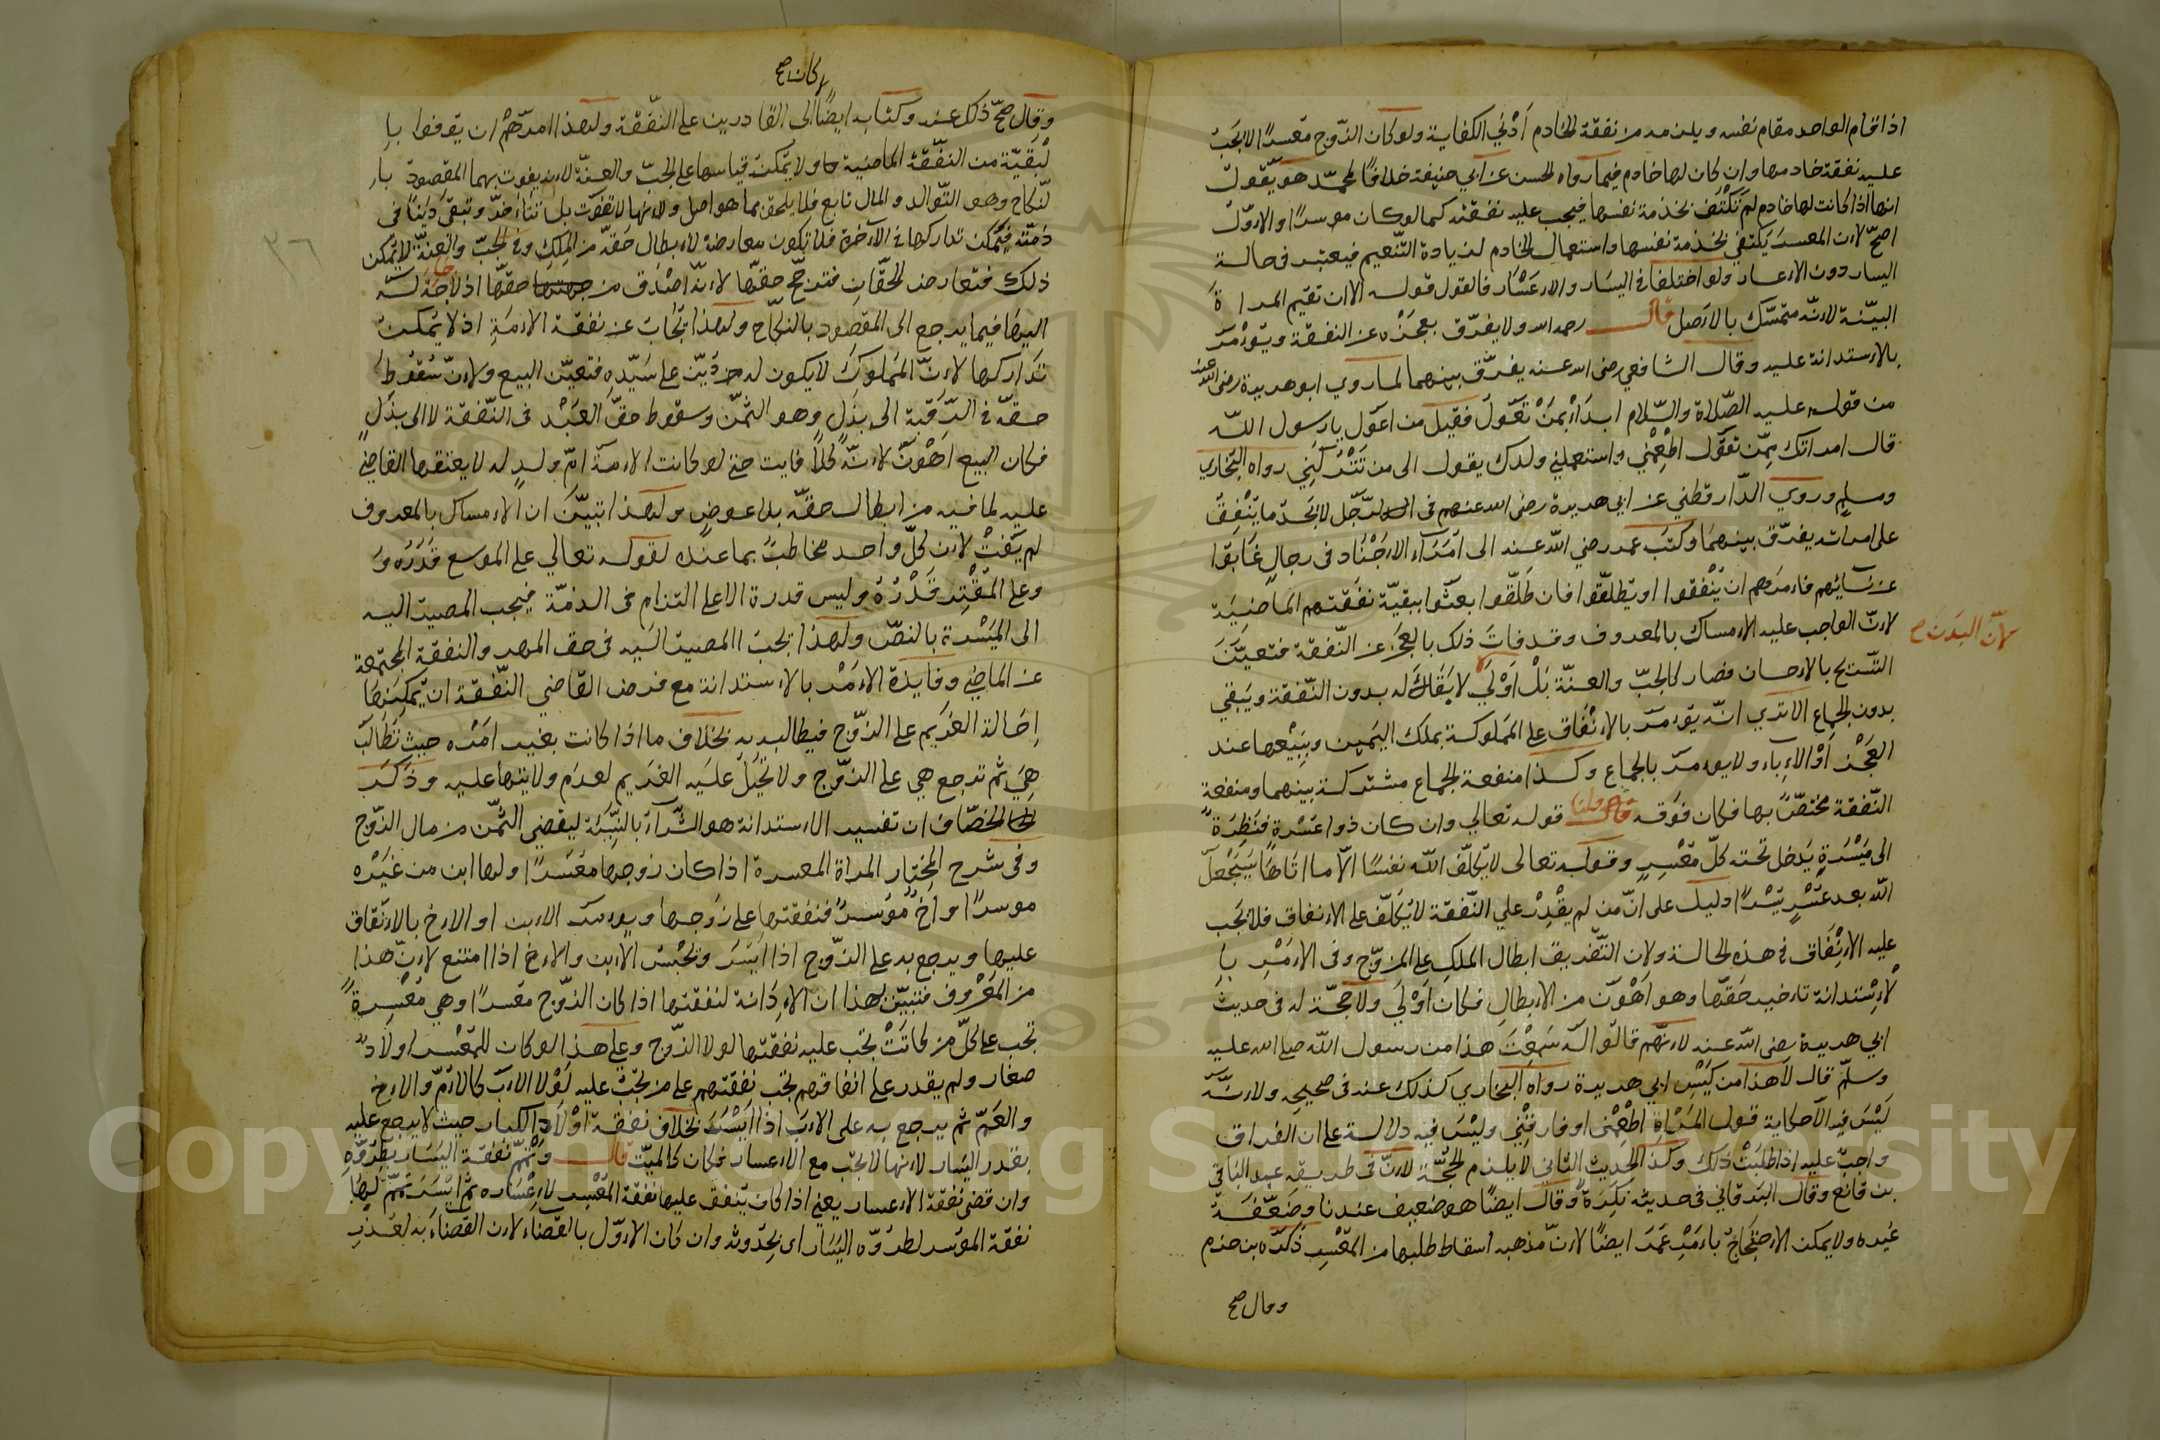 اذا قام الواحد مقام نفسه ويلزمه من نفقة الخادم أدنى الكفاية ولو كان الزوج معسرا لا يجب
عليه نفقة خادمها وان كان لها خادم فيما رواه الحسن عن ابي حنيفة خلافا لمحمد هو يقول
انها اذا كانت لها خادم لم تكتف بخدمة نفسها فيجب عليه نفقته كما لو كان موسرا والاول
اصح لان المعسر يكتفي بخدمة نفسها واستعمال الخادم لزيادة التنعيم فيعتبر في حالة
اليسار دون الاعسار ولو اختلفا في اليسار والاعسار فالقول قوله الا ان تقيم المراة
البينة لانه متمسك بالاصل قال رحمه الله ولا يفرق بعجزه عن النفقة وتؤمر
بالاستدانة عليه وقال الشافعي رضي الله عنه يفرق بينهما لما روي ابو هريرة رضي الله عنه
من قوله عليه الصلاة والسلام ابدأ بمن تعول فقيل من اعول يا رسول الله
قال امراتك ممن تعول اطعمني واستعملني ولدك يقول الى من تتركني رواه البخاري
ومسلم وروي الدارقطني عن ابي هريرة رضي الله عنهم في الرجل لا يجد ما ينفق
على امراته يفرق بينهما وكتب عمر رضي الله عنه الى امراء الاجناد في رجال غابوا
عن نسائهم فامرهم ان ينفقوا او يطلقوا فان طلقوا بعثوا ببقية نفقتهم الماضية
لان الواجب عليه الامساك بالمعروف وقد فات ذلك بالعجز عن النفقة فتعين
لان البدن ح
التسريح بالاحسان فصار كالجب والعنة بل اولى لا بقاء له بدون النفقة ويبقي
بدون الجماع الا تري انه يؤمر بالانفاق على المملوكة بملك اليمين وبيعها عند
العجز او الاباء ولا يؤمر بالجماع وكذا منفعة الجماع مشتركة بينهما ومنفعة
النفقة مختصة بها فكان فوقه ولنا قوله تعالي وان كان ذو عسرة فنظرة
الى ميسرة يدخل تحته كل معسر وقوله تعالى لا يكلف الله نفسا الا ما اتاها سيجعل
الله بعد عسر يسرا دليل على ان من لم يقدر علي النفقة لا يكلف على الانفاق فلا يجب
عليه الانفاق في هذه الحالة ولان التفريق ابطال الملك على الزوج وفي الامر با
لاستدانة تاخير حقها وهو اهون من الابطال فكان اولي ولا حجة له في حديث
ابي هريرة رضي الله عنه لانهم قالوا له سمعت هذا من رسول الله صلى الله عليه
وسلم قال لا هذا من كيس ابي هريرة رواه البخاري كذلك عنه في صحيحه ولانه
ليس فيه الا حكاية قول المراة اطعمني او فارقني وليس فيه دلالة على ان الفراق
واجب عليه اذا طلبت ذلك وكذا الحديث الثاني لا يلزم الحجة لان في طريقه عبد الباقي
بن قانع وقال البرقاني في حديثه نكرة وقال ايضا هو ضعيف عندنا وضعفه
غيره ولا يمكن الاحتجاج بامر عمر ايضا لان مذهبه اسقاط طلبها من المعسر ذكره بن حزم
وقال صح
وكان صح
وقال صح ذلك عنه وكتابه ايضا الى القادرين على النفقة ولهذا امرهم ان يوفوا با
لبقية من النفقة الماضية ولا يمكن قياسها على الجب والعنة لانه يفوت بهما المقصود با
لنكاح وهو التوالد والمال تابع فلا يلحق بما هو اصل ولانها لا تفوت بل تتاخر وتبقى دينا في
ذمته فيمكن تداركها في الآخرة فلا تكون معارضة لابطال حقه من الملك وفي الجب والعنة لا يمكن
ذلك فتعارض الحقان فترجح حقها لانه اصدق من حقها اذ لا حاجة له
اليها فيما يرجع الى المقصود بالنكاح ولهذا بخلاف عن نفقة الامة اذ لا يمكن
تداركها لان المملوك لا يكون له دين على سيده فتعين البيع ولان سقوط
حقه في الرقبة الى بدل وهو الثمن وسقوط حق العبد في النفقة لا الى بدل
فكان البيع اهون لانه كلا فايت حتى لو كانت الامة ام ولد له لا يعتقها القاضي
عليه لما فيه من ابطال حقه بلا عوض ولهذا تبين ان الامساك بالمعروف
لم يفت لان كل واحد مخاطب بما عنده لقوله تعالي على الموسع قدره و
وعلى المقتر قدره وليس قدرة الا على التزام في الذمة فيجب المصير اليه
الى الميسرة بالنص ولهذا يجب المصير اليه في حق المهر والنفقة المجتمعة
عن الماضي وفايدة الامر بالاستدانة مع فرض القاضي النفقة ان يمكنها
احالة الغريم على الزوج فيطالبه به بخلاف ما اذا كانت بغير امره حيث تطالب
هي ثم ترجع هي على الزوج ولا تحيل عليه الغريم لعدم ولايتها عليه وذكر
الخصاف ان تفسير الاستدانة هو الشراء بالنسيئة ليقضي الثمن من مال الزوج
وفي شرح المختار المراة المعسرة اذا كان زوجها معسرا ولها ابن من غيره
موسرا او اخ موسر فنفقتها على زوجها ويؤمر الابن او الاخ بالانفاق
عليها ويرجع به على الزوج اذا ايسر ويحبس الابن والاخ اذا امتنع لان هذا
من المعروف فتبين بهذا ان الادانة لنفقتها اذا كان الزوج معسرا وهي معسرة
تجب على كل من كانت تجب عليه نفقتها لولا الزوج وعلى هذا لو كان للمعسر اولاد
صغار ولم يقدر على انفاقهم تجب نفقتهم على من تجب عليه لولا الاب كالام والاخ
والعم ثم يرجع به على الاب اذا ايسر بخلاف نفقة اولاده الكبار حيث لا يرجع عليه
بقدر اليسار لانها لا تجب مع الاعسار فكان كالميت قال وتتمم نفقة اليسار بطروه
وان قضى نفقة الاعسار يعني اذا كان ينفق عليها نفقة المعسر لاعساره ثم ايسر تمم لها
نفقة الموسر لطروه اليسار اى بحدوثه وان كان الاول بالقضاء لان القضاء به لعذر
٣٦
Copyright © King Saud University
1957